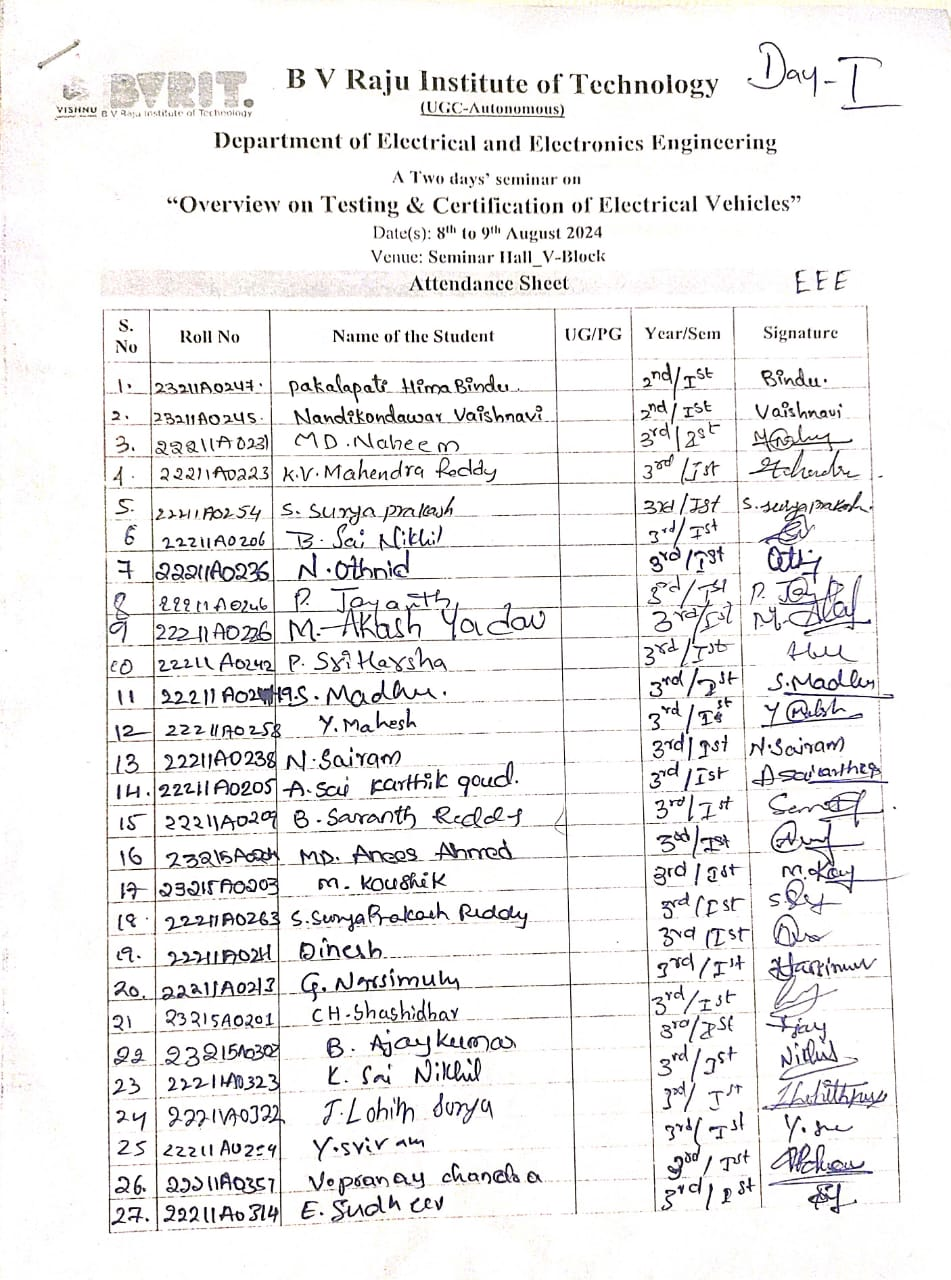 Day-I
VISHNU
BVRIT.
B V Raju Institute of Technology
B V Raju Institute of Technology
(UGC-Autonomous)
Department of Electrical and Electronics Engineering
A Two days' seminar on
"Overview on Testing & Certification of Electrical Vehicles"
Date(s): 8th to 9th August 2024
Venue: Seminar Hall_V-Block
Attendance Sheet
EEE
S. No Roll No Name of the Student UG/PG Year/Sem Signature
1. 23211A0247. Pakalapati Hima Bindu. 2nd/Ist Bindu.
2. 23211A0245. Nandikondawar Vaishnavi 2nd/Ist Vaishnavi
3. 22211A0231 MD. Naheem 3rd/Ist
4. 22211A0223 K.V. Mahendra Reddy 3rd/Ist
5. 22211A0254 S. Surya prakash 3rd/Ist S. Surya prakash.
6 22211A0206 B. Sai Nikhil 3rd/Ist
7 22211A0236 N. Othnid 3rd/Ist
8 22211A0246 P. Jayanth 3rd/Ist P. Jay
9 22211A0226 M. Akash Yadav 3rd/Ist
10 22211A0242 P. Sri Harsha 3rd/Ist
11 S. Madhu. 3rd/Ist S. Madhu
12 22211A0258 Y. Mahesh 3rd/Ist
13 22211A0238 N. Sairam 3rd/Ist N. Sairam
14. 22211A0205 A. Sai Karthik goud. 3rd/Ist A Saikarthik
15 22211A0209 B. Saranth Reddy 3rd/Ist
16 MD. Anees Ahmed 3rd/Ist
17 23215A0203 M. Koushik 3rd/Ist
18. 22211A0263 S. Surya Prakash Reddy 3rd/Ist
19. 22211A0211 Dinesh 3rd/Ist
20. 22211A0213 G. Narsimulu 3rd/Ist
21 23215A0201 CH. Shashidhar 3rd/Ist
22 23215A0302 B. Ajay Kumar 3rd/Ist Ajay
23 22211A0323 K. Sai Nikhil 3rd/Ist Nikhil
24 22211A0322 J. Lohith Surya 3rd/Ist
25 22211A0259 Y. Sriram 3rd/Ist
26. 22211A0357 V. Pranay Chandra 3rd/Ist
27. 22211A0314 E. Sudheer 3rd/Ist